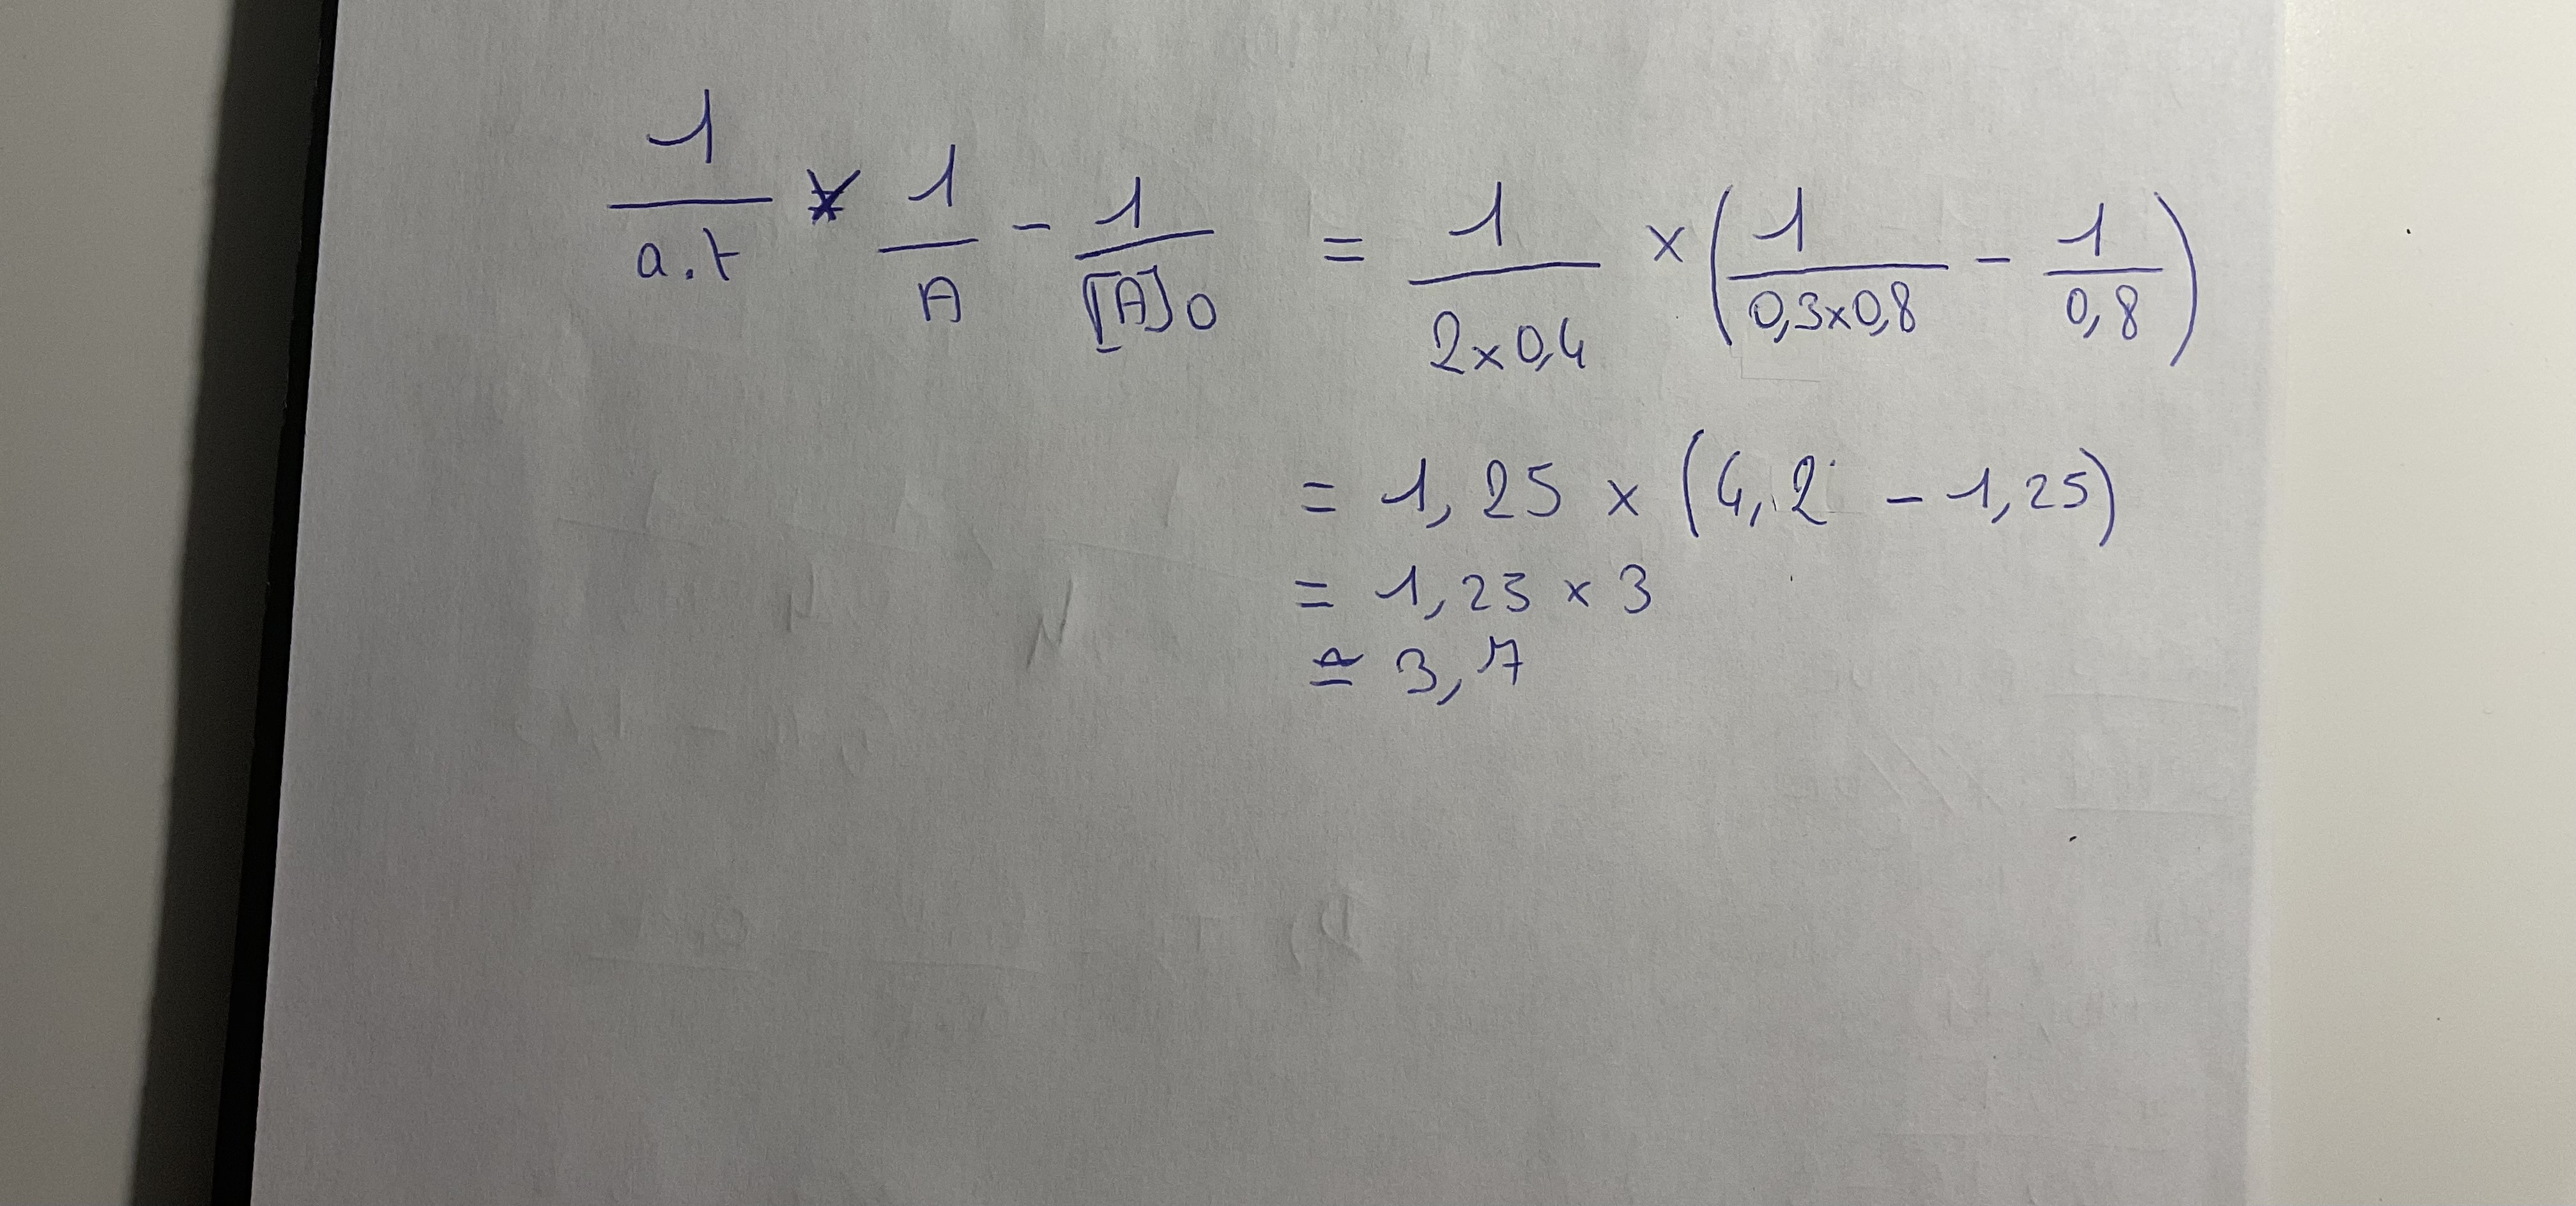 1/a.t × 1/A - 1/[A]0 = 1/2x0,4 x (1/0,3x0,8 - 1/0,8)
= 1,25 x (4,2 - 1,25)
= 1,25 x 3
≃ 3,7